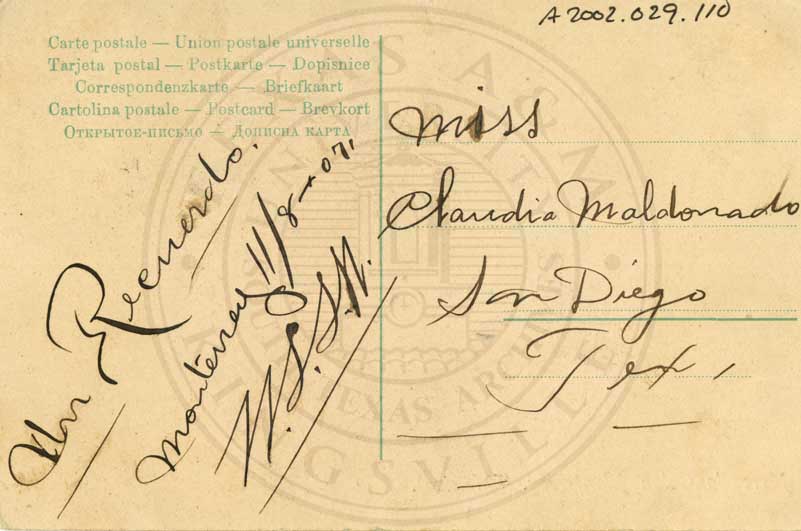 A2002.029.110
Carte postale — Union postale universelle
Tarjeta postal — Postkarte — Dopisnice
Correspondenzkarte — Briefkaart
Cartolina postale — Postcard — Brevkort
Открытое-письмо — Дописна карта
Un Recuerdo.
Monterrey 11/8-07.
Miss
Claudia Maldonado
San Diego
Tex.
SOUTH TEXAS ARCHIVES
KINGSVILLE